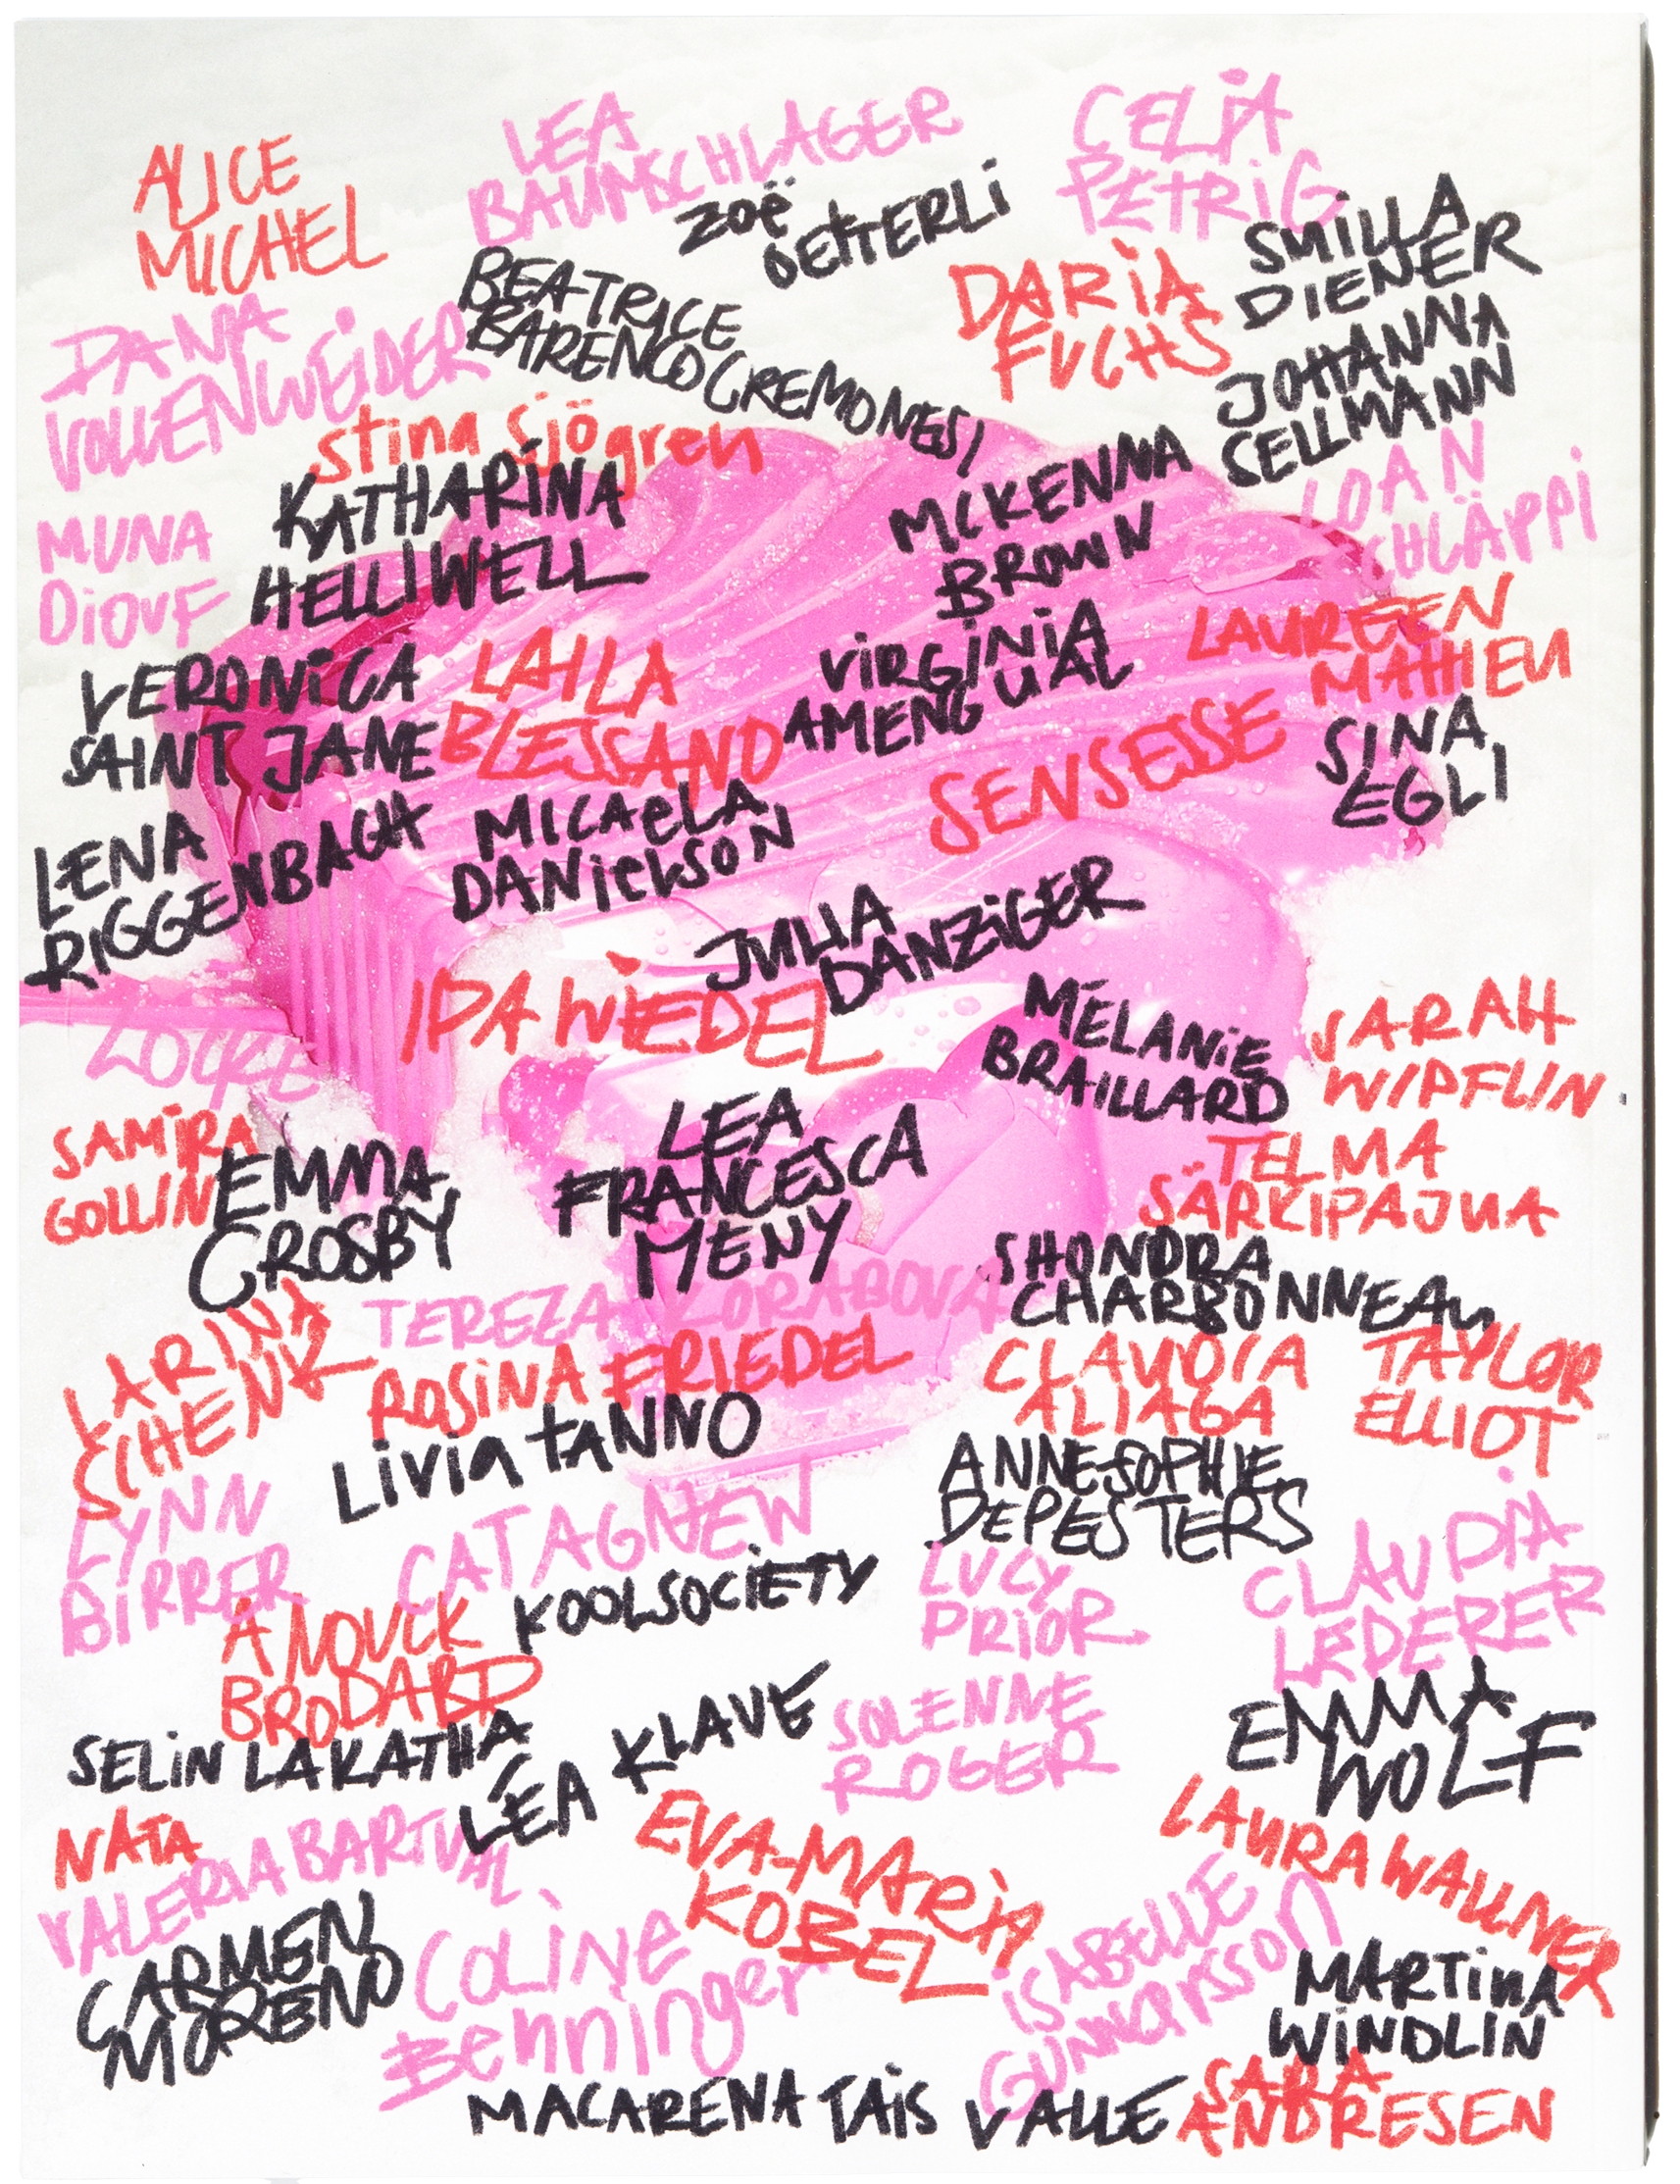 ALICE
MICHEL
LEA
BAUMSCHLAGER
CELIA
PETRIG
ZOË
OETTERLI
SMILLA
DIENER
BEATRICE
BARENCO CREMONESI
DARIA
FUCHS
DANA
VOLLENWEIDER
JOHANNA
SELLMANN
Stina Sjögren
KATHARINA
HELLIWELL
MCKENNA
BROWN
LOAN
SCHLÄPPI
MUNA
DIOUF
LAUREEN
MATHIEU
VERONICA
SAINT JANE
LAILA
BLESSANO
VIRGINIA
AMENGUAL
SENSESSE
SINA
EGLI
LENA
RIGGENBACH
MICAELA
DANIELSON
JULIA
DANZIGER
IDA WIEDEL
MÉLANIE
BRAILLARD
SARAH
WIPFLIN
SAMIRA
GOLLIN
EMMA
CROSBY
LEA
FRANCESCA
MENY
TELMA
SÄRKIPAJUA
SHONDRA
CHARBONNEAU
TEREZA ZORABOVA
LARINA
SCHENK
ROSINA FRIEDEL
CLAUDIA
ALIAGA
TAYLOR
ELLIOT
LIVIA TANNO
ANNE-SOPHIE
DEPESTERS
LYNN
BIRRER
CAT AGNEW
KOOLSOCIETY
LUCY
PRIOR
CLAUDIA
LEDERER
ANOUCK
BRODARD
SELIN LAKATHA
LÉA KLAVE
SOLENNE
ROGER
EMMA
WOLF
NATA
VALERIA BARTUAL
EVA-MARIA
KOBEL
LAURA WALLNER
CARMEN
MORENO
COLINE
Benninger
ISABELLE
GUNNARSSON
MARTINA
WINDLIN
MACARENA TAIS VALLE
SARA
ANDRESEN